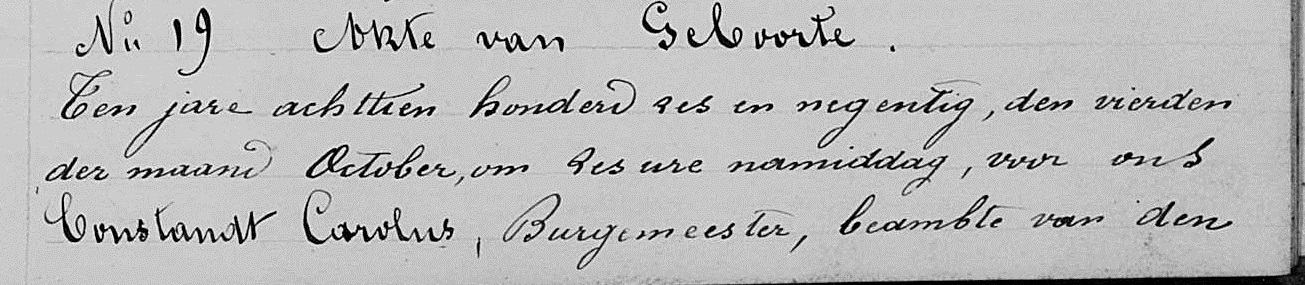 No 19 Akte van Geboorte.
Ten jare achttien honderd zes en negentig, den vierden
der maand October, om zes ure namiddag, voor ons
Constandt Carolus, Burgemeester, beambte van den